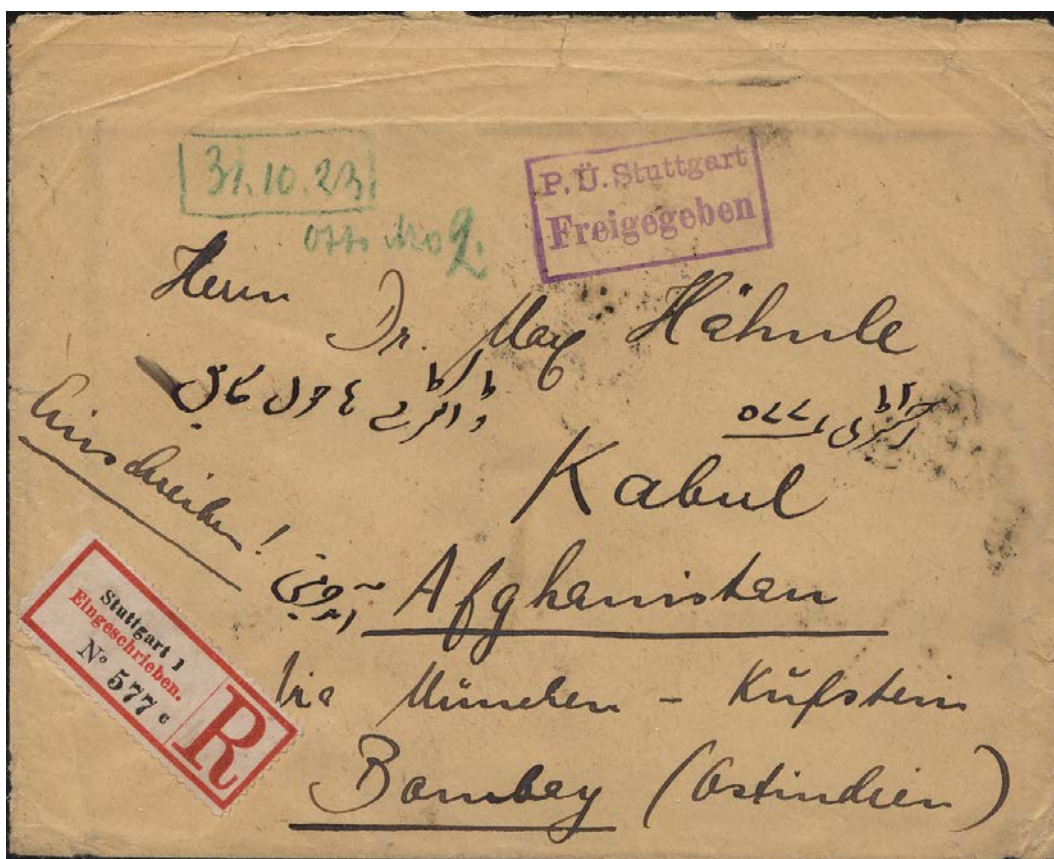 31.10.23
P. Ü. Stuttgart
Freigegeben
Herrn
Dr. Max Hähnle
Einschreiben!
Kabul
Afghanistan
Via München - Kufstein
Bombay (Ostindien)
Stuttgart 1
Eingeschrieben.
Nº 577 c
R